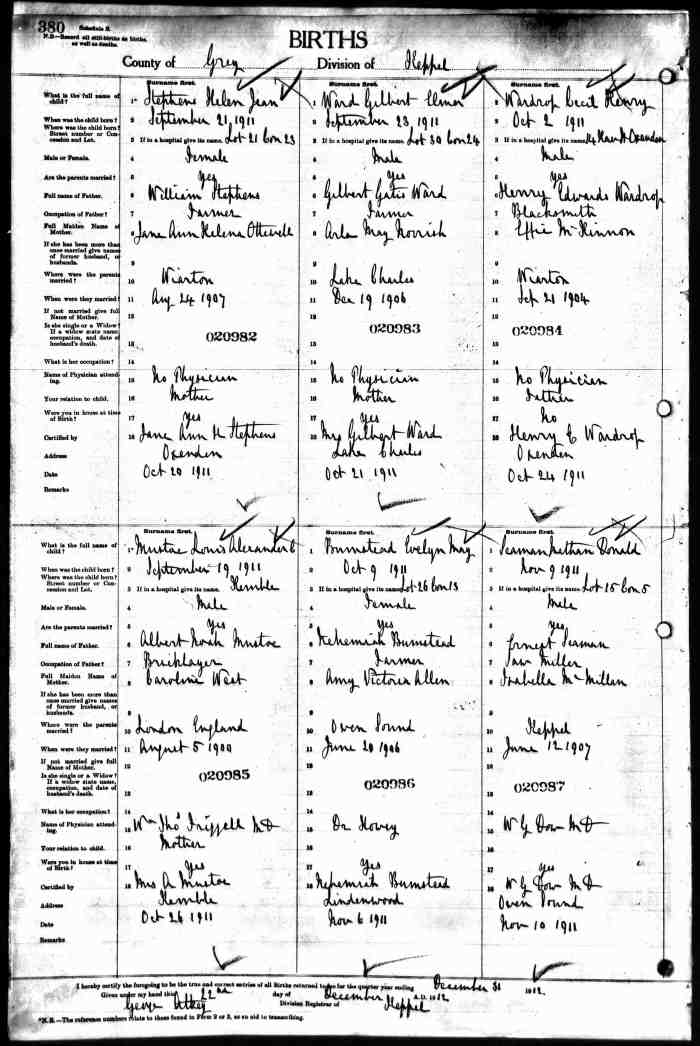 380
Schedule B.
N.B.—Record all still-births as births, as well as deaths.
BIRTHS
County of Grey Division of Keppel
Surname first. Surname first. Surname first.
What is the full name of child? 1 Stephens Helen Jean 1 Ward Gilbert Elmer 1 Wardrop Cecil Henry
When was the child born? 2 September 21, 1911 2 September 23, 1911 2 Oct 2 1911
Where was the child born? Street number or Concession and Lot. 3 If in a hospital give its name. Lot 21 Con 23 3 If in a hospital give its name. Lot 30 Con 24 3 If in a hospital give its name. Oxenden
Male or Female. 4 Female 4 Male 4 Male
Are the parents married? 5 Yes 5 Yes 5 Yes
Full name of Father. 6 William Stephens 6 Gilbert Gates Ward 6 Henry Edwards Wardrop
Occupation of Father? 7 Farmer 7 Farmer 7 Blacksmith
Full Maiden Name of Mother. 8 Jane Ann Helena Ottewell 8 Arla May Norrish 8 Effie McKinnon
If she has been more than once married give names of former husband, or husbands. 9 9 9
Where were the parents married? 10 Wiarton 10 Lake Charles 10 Wiarton
When were they married? 11 Aug 24 1907 11 Dec 19 1906 11 Sep 21 1904
If not married give full Name of Mother. 12 12 12
Is she single or a Widow? If a widow state name, occupation, and date of husband's death. 13 020982 13 020983 13 020984
What is her occupation? 14 14 14
Name of Physician attending. 15 No Physician 15 No Physician 15 No Physician
Your relation to child. 16 Mother 16 Mother 16 Father
Were you in house at time of Birth? 17 Yes 17 Yes 17 No
Certified by 18 Jane Ann H Stephens 18 Mrs Gilbert Ward 18 Henry E Wardrop
Address Oxenden Lake Charles Oxenden
Date Oct 20 1911 Oct 21 1911 Oct 24 1911
Remarks
Surname first. Surname first. Surname first.
What is the full name of child? 1 Mustoe Louis Alexander C 1 Bumstead Evelyn May 1 Seaman Nathan Donald
When was the child born? 2 September 19 1911 2 Oct 9 1911 2 Nov 9 1911
Where was the child born? Street number or Concession and Lot. 3 If in a hospital give its name. Kemble 3 If in a hospital give its name. Lot 26 Con 13 3 If in a hospital give its name. Lot 15 Con 5
Male or Female. 4 Male 4 Female 4 Male
Are the parents married? 5 Yes 5 Yes 5 Yes
Full name of Father. 6 Albert Noah Mustoe 6 Nehemiah Bumstead 6 Ernest Seaman
Occupation of Father? 7 Bricklayer 7 Farmer 7 Saw Miller
Full Maiden Name of Mother. 8 Caroline West 8 Amy Victoria Allen 8 Isabella McMillan
If she has been more than once married give names of former husband, or husbands. 9 9 9
Where were the parents married? 10 London England 10 Owen Sound 10 Keppel
When were they married? 11 August 5 1900 11 June 20 1906 11 June 12 1907
If not married give full Name of Mother. 12 12 12
Is she single or a Widow? If a widow state name, occupation, and date of husband's death. 13 020985 13 020986 13 020987
What is her occupation? 14 14 14
Name of Physician attending. 15 Wm Thos Frizzell MD 15 Dr Hovey 15 W G Dow MD
Your relation to child. 16 Mother 16 16
Were you in house at time of Birth? 17 Yes 17 Yes 17 Yes
Certified by 18 Mrs A Mustoe 18 Nehemiah Bumstead 18 W G Dow MD
Address Kemble Lindenwood Owen Sound
Date Oct 26 1911 Nov 6 1911 Nov 10 1911
Remarks
I hereby certify the foregoing to be the true and correct entries of all Births returned to me for the quarter year ending December 31 1912.
Given under my hand this 22nd day of December A.D. 1912
George Division Registrar of Keppel
*N.B.—The reference numbers relate to those found in Form 2 or 3, so no aid to transcribing.